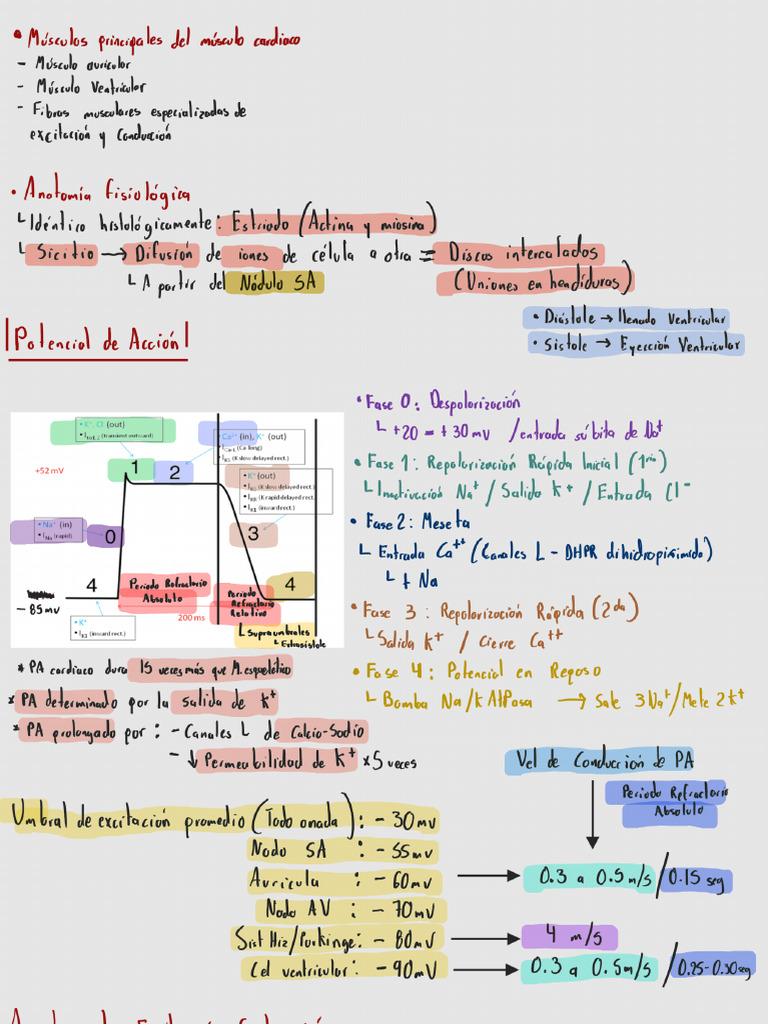 • Músculos principales del músculo cardiaco
- Músculo auricular
- Músculo Ventricular
- Fibras musculares especializadas de
excitación y Conducción
• Anatomía fisiológica
Idéntico histológicamente: Estriado (Actina y miosina)
Sicitio → Difusión de iones de célula a otra = Discos intercalados
(Uniones en hendiduras)
A partir del Nódulo SA
• Diástole → llenado Ventricular
• Sístole → Eyección Ventricular
|Potencial de Acción|
• K⁺, Cl (out)
• Ito1,2 (transient outward)
• Ca²⁺ (in), K⁺ (out)
• ICa-L (Ca long)
• IKS (K slow delayed rect.)
• K⁺ (out)
• IKS (K slow delayed rect.)
• IKR (K rapid delayed rect.)
• IK1 (inward rect.)
+52 mV
1
2
• Na⁺ (in)
• INa (rapid)
0
3
4
4
- 85 mv
Periodo Refractario
Absoluto
Periodo
Refractario
Relativo
200 ms
• K⁺
• IK1 (inward rect.)
Supraumbrales
Extrasístole
• Fase 0: Despolarización
+20 = +30 mv / entrada súbita de Na⁺
• Fase 1: Repolarización Rápida Inicial (1ria)
Inactivación Na⁺ / Salida K⁺ / Entrada Cl⁻
• Fase 2: Meseta
Entrada Ca⁺⁺ (Canales L - DHPR dihidropirimido)
+ Na
• Fase 3: Repolarización Rápida (2da)
Salida K⁺ / Cierre Ca⁺⁺
• Fase 4: Potencial en Reposo
Bomba Na/K AtPasa → Sale 3Na⁺/Mete 2K⁺
* PA cardiaco dura 15 veces más que M. esquelético
* PA determinado por la salida de K⁺
* PA prolongado por: - Canales L de Calcio-Sodio
- ↓ Permeabilidad de K⁺ x 5 veces
Vel de Conducción de PA
Periodo Refractario
Absoluto
Umbral de excitación promedio (Todo o nada): - 30 mv
Nodo SA : - 55 mv
Aurícula : - 60 mv → 0.3 a 0.5 m/s / 0.15 seg
Nodo AV : - 70 mv
Sist Hiz/Purkinge: - 80 mv → 4 m/s
Cel ventricular: - 90 mv → 0.3 a 0.5 m/s / 0.25-0.30 seg